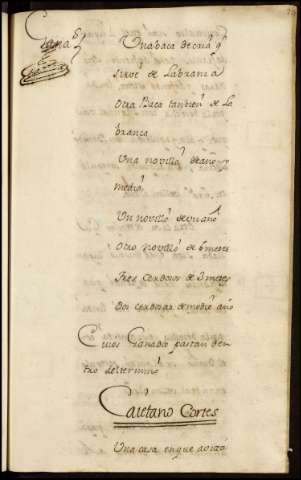 Ganado
Una baca de cria q
sirve de Labranza
Otra Baca tambien de La
branza
Una novilla de año y
medio
Un novillo de un año
Otro novillo de 6 meses
tres Cerdosos de 3 meses
dos cerdosas de medio año
Cuios Ganados pastan den
tro del termino
Caietano Cortes
Una casa en que avita